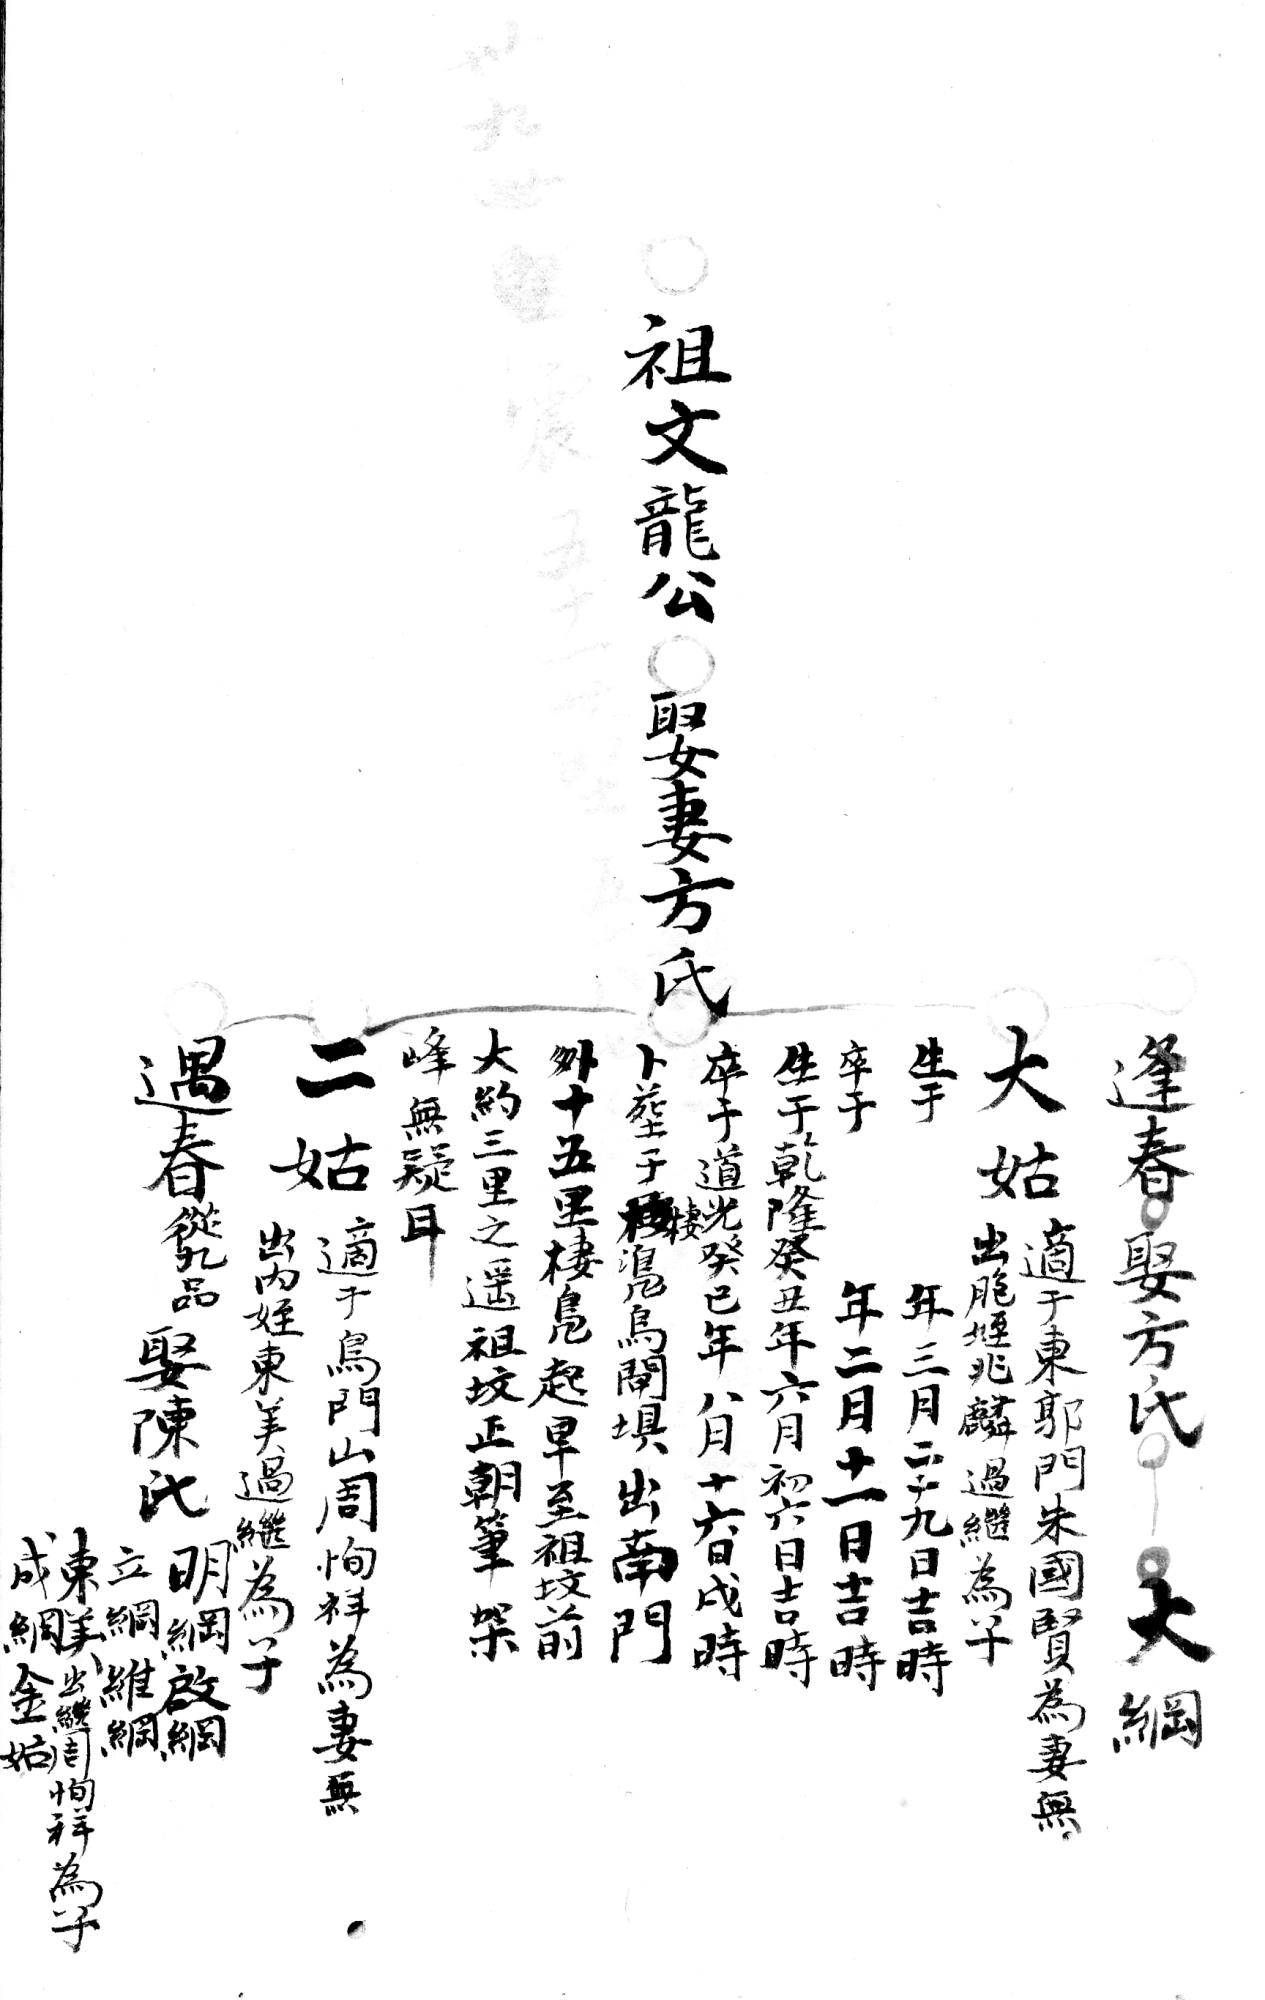 祖文龍公 娶妻方氏
逢春 娶方氏 大綱
大姑 適于東郭門朱國賢為妻無
出胞姪兆麟過繼為子
生于 年三月二十九日吉時
卒于 年二月十一日吉時
生于乾隆癸丑年六月初六日吉時
卒于道光癸巳年八月十六日戌時
卜葬于棲鳧鳥閘埧出南門
外十五里棲鳧起早至祖坟前
大約三里之遥祖坟正朝筆架
峰無疑耳
二姑 適于鳥門山周恂祥為妻無
出內姪東美過繼為子
遇春 從九品 娶陳氏 明綱啟綱
立綱維綱
東美出繼周恂祥為子
成綱金姑